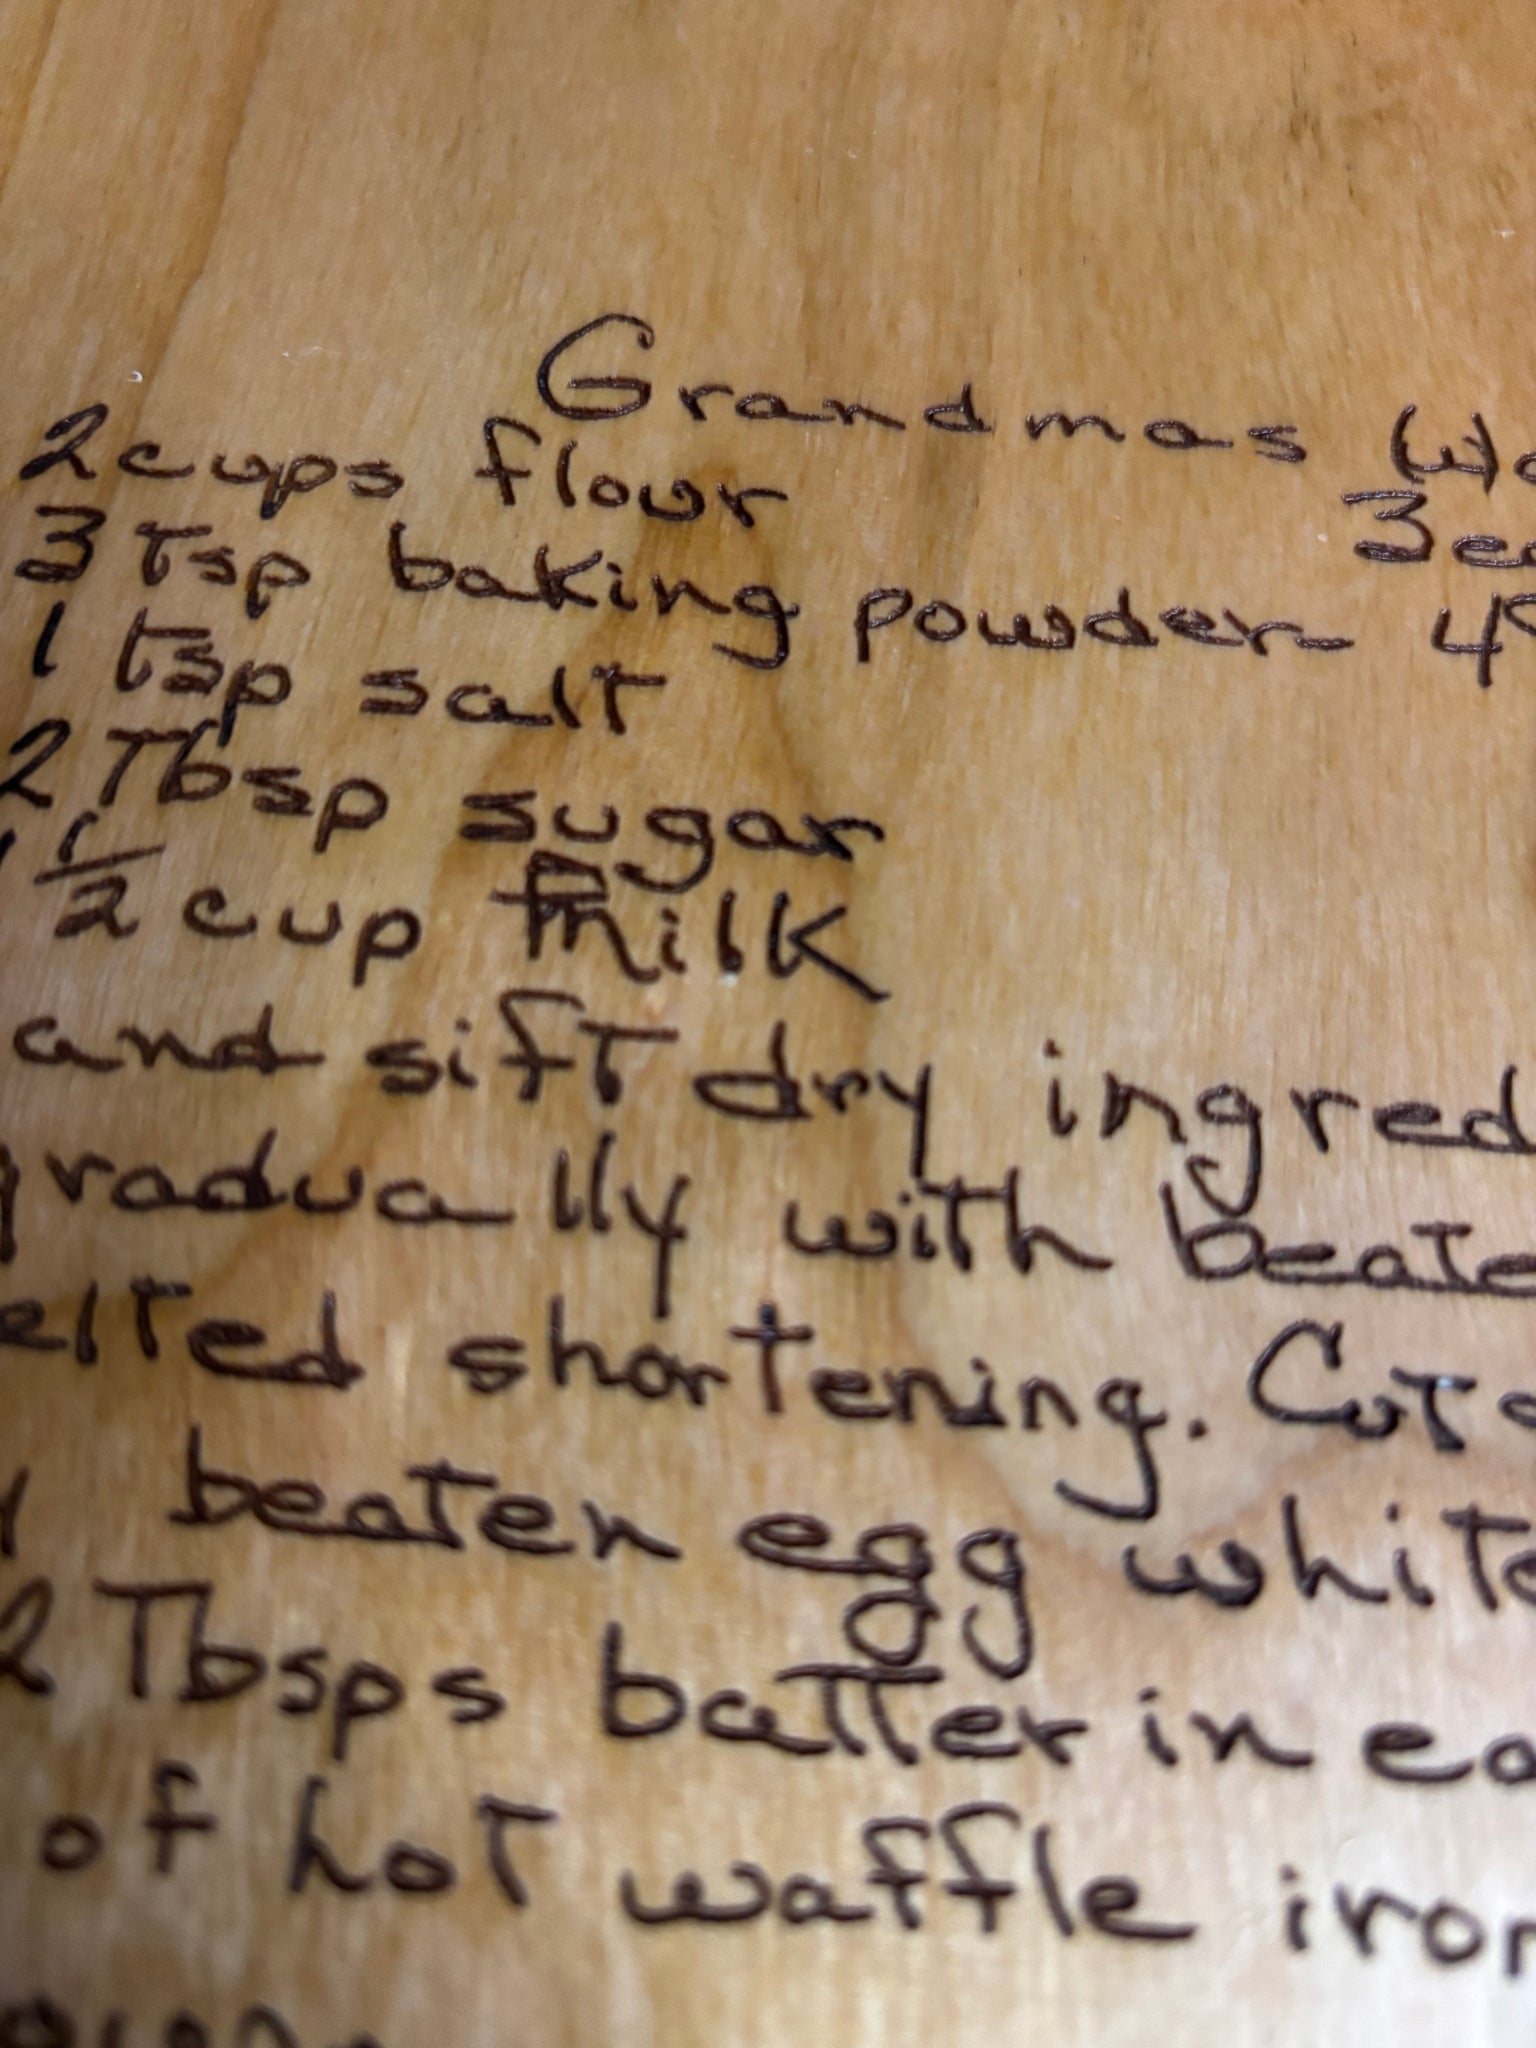 Grandmas
2 cups flour 3
3 Tsp baking powder 4
1 tsp salt
2 Tbsp sugar
1 1/2 cup milk
and sift dry ingred
gradually with beate
elted shortening. Cut
beaten egg white
2 Tbsps batter in ea
of hot waffle iron